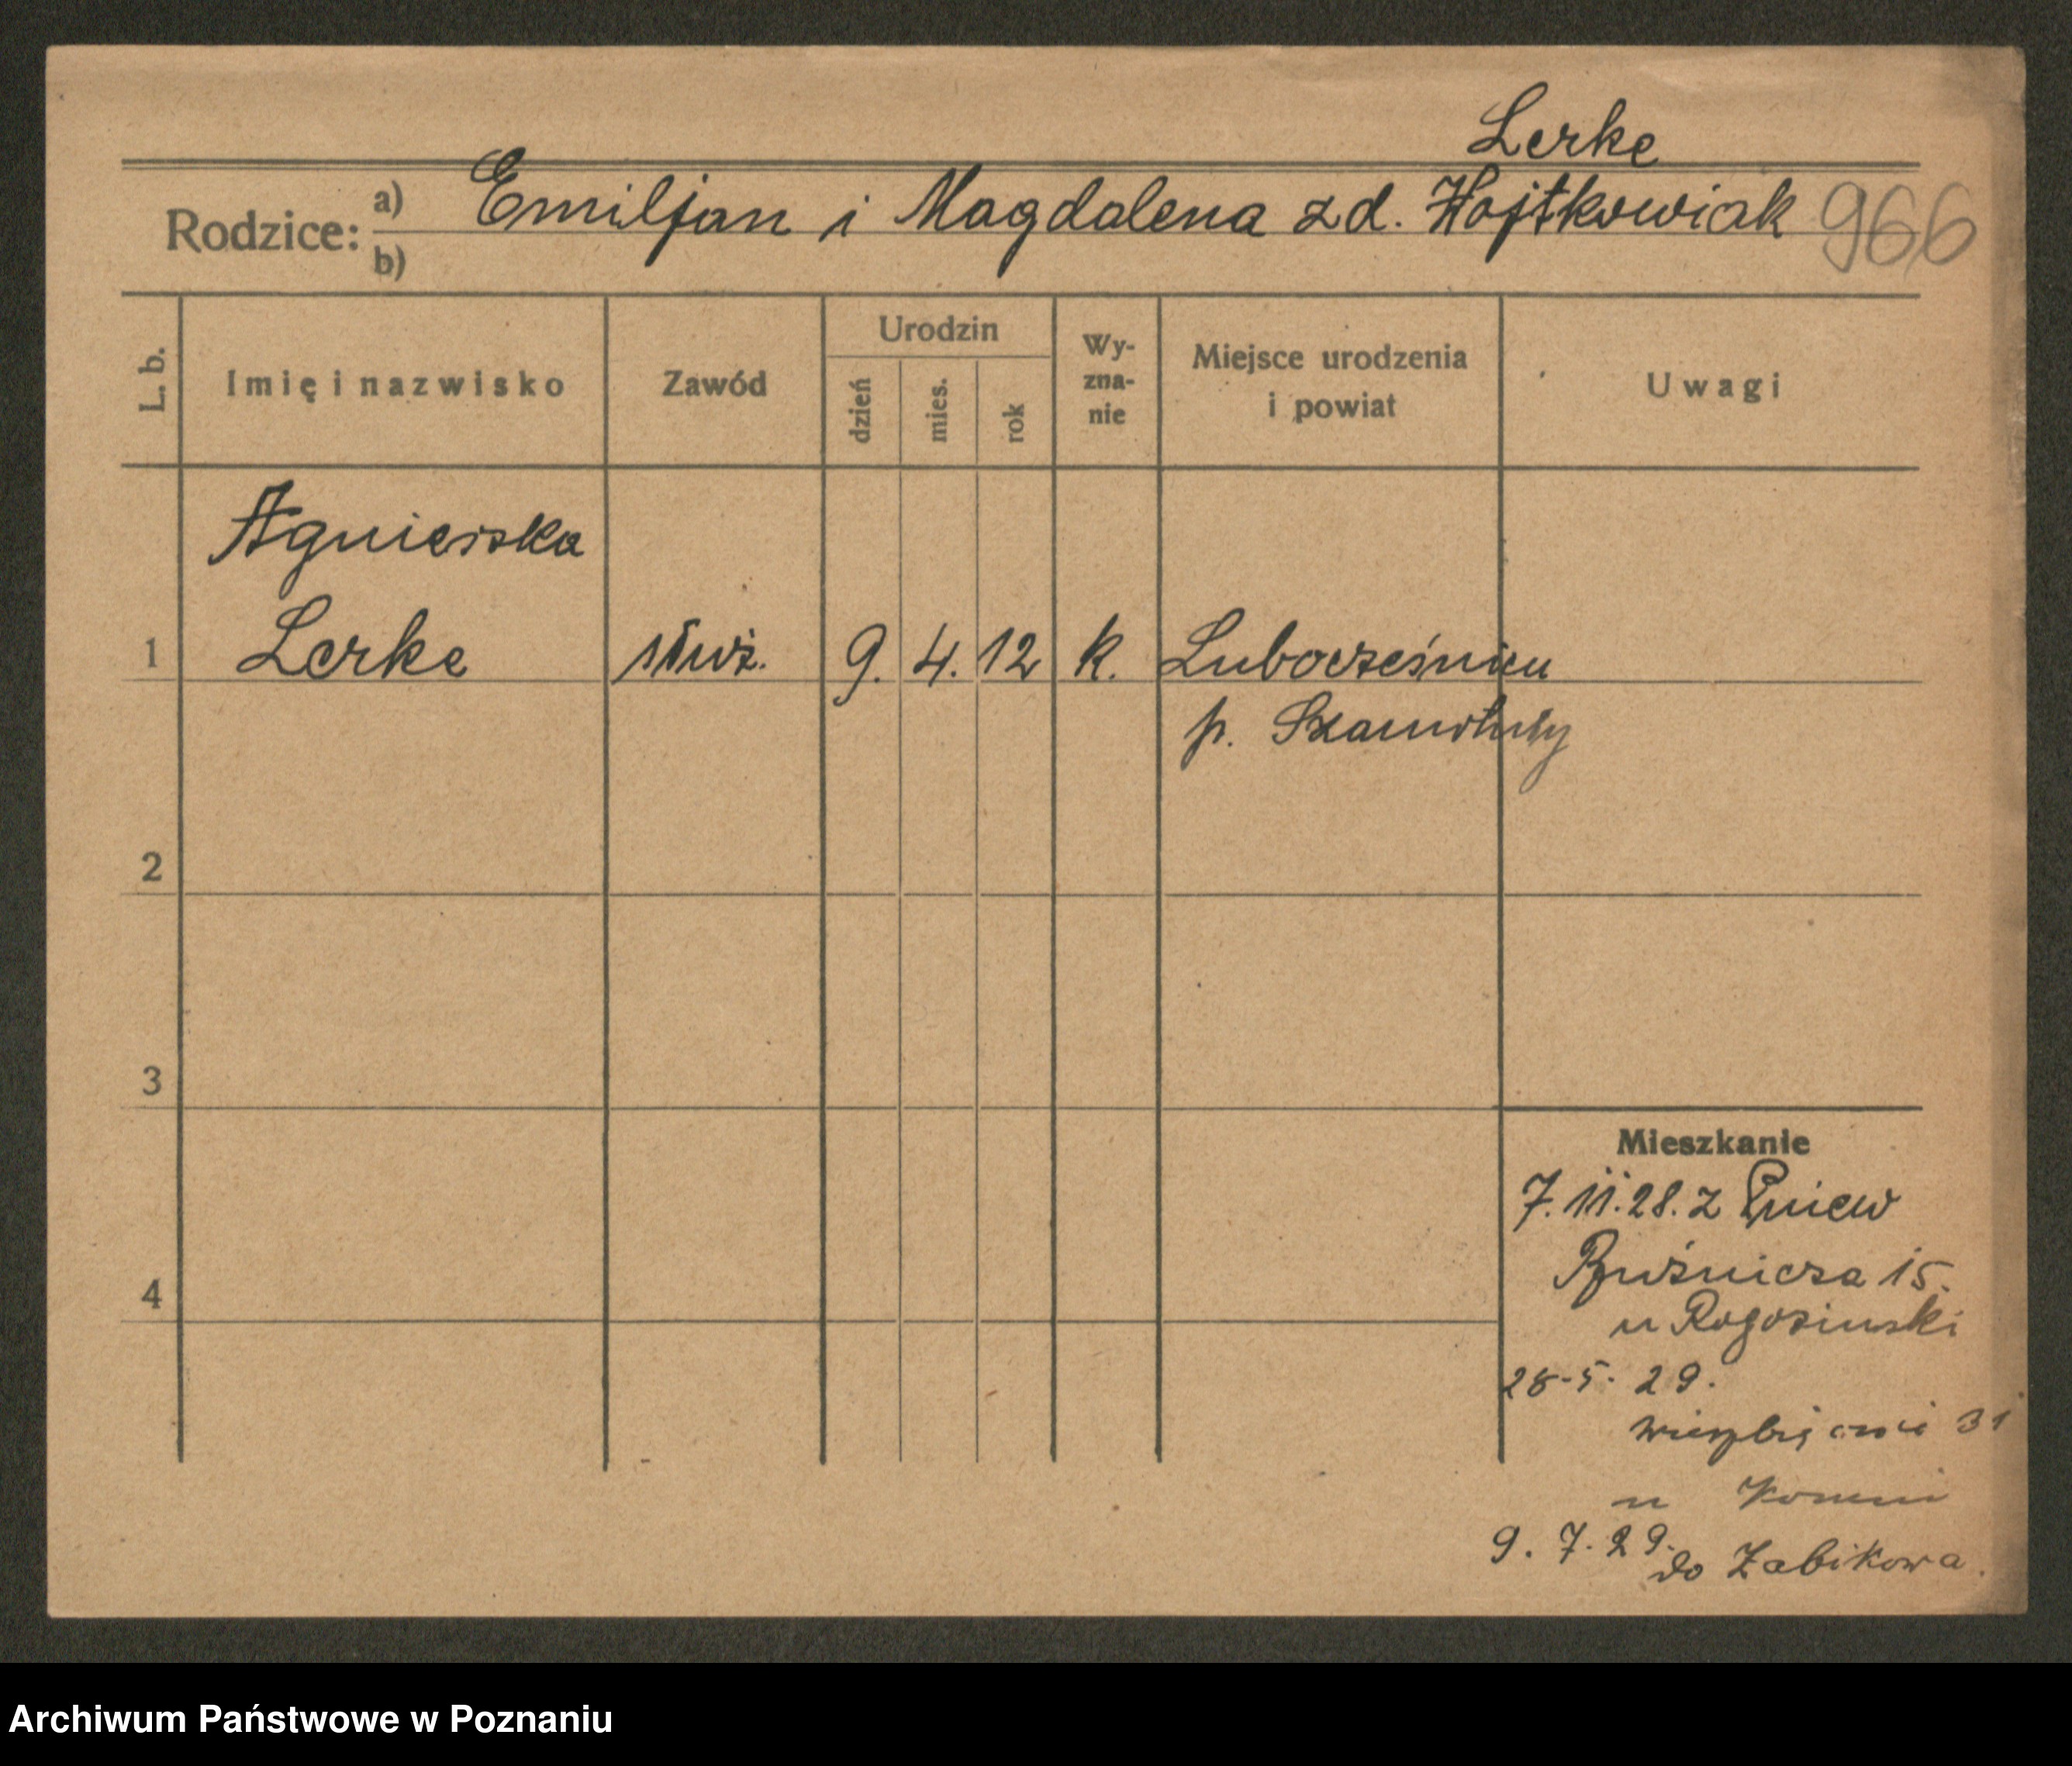 Lerke
Rodzice: a) Emiljan i Magdalena zd. Wojtkowiak 966
b)
L. b. Imię i nazwisko Zawód Urodzin dzień mies. rok Wyznanie Miejsce urodzenia i powiat Uwagi
Agnieska
1 Lerke służ. 9. 4. 12 k. Lubocześnica
p. Szamotuły
2
3
Mieszkanie
7. 11. 28. z Pniew
4 15.
u Rogoziński
28-5. 29.
31
u
9. 7. 29.
do Żabikowa.
Archiwum Państwowe w Poznaniu